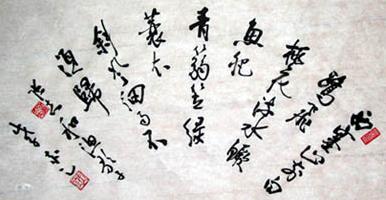 西塞山前白
鹭飛
桃花流水鳜
魚肥
青箬笠绿
蓑衣
斜風细雨不
須歸